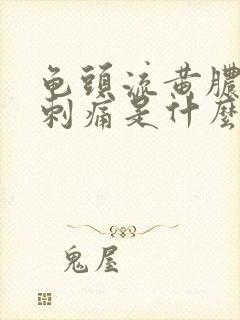 龟頭流黄膿
刺痛是什麼
鬼屋